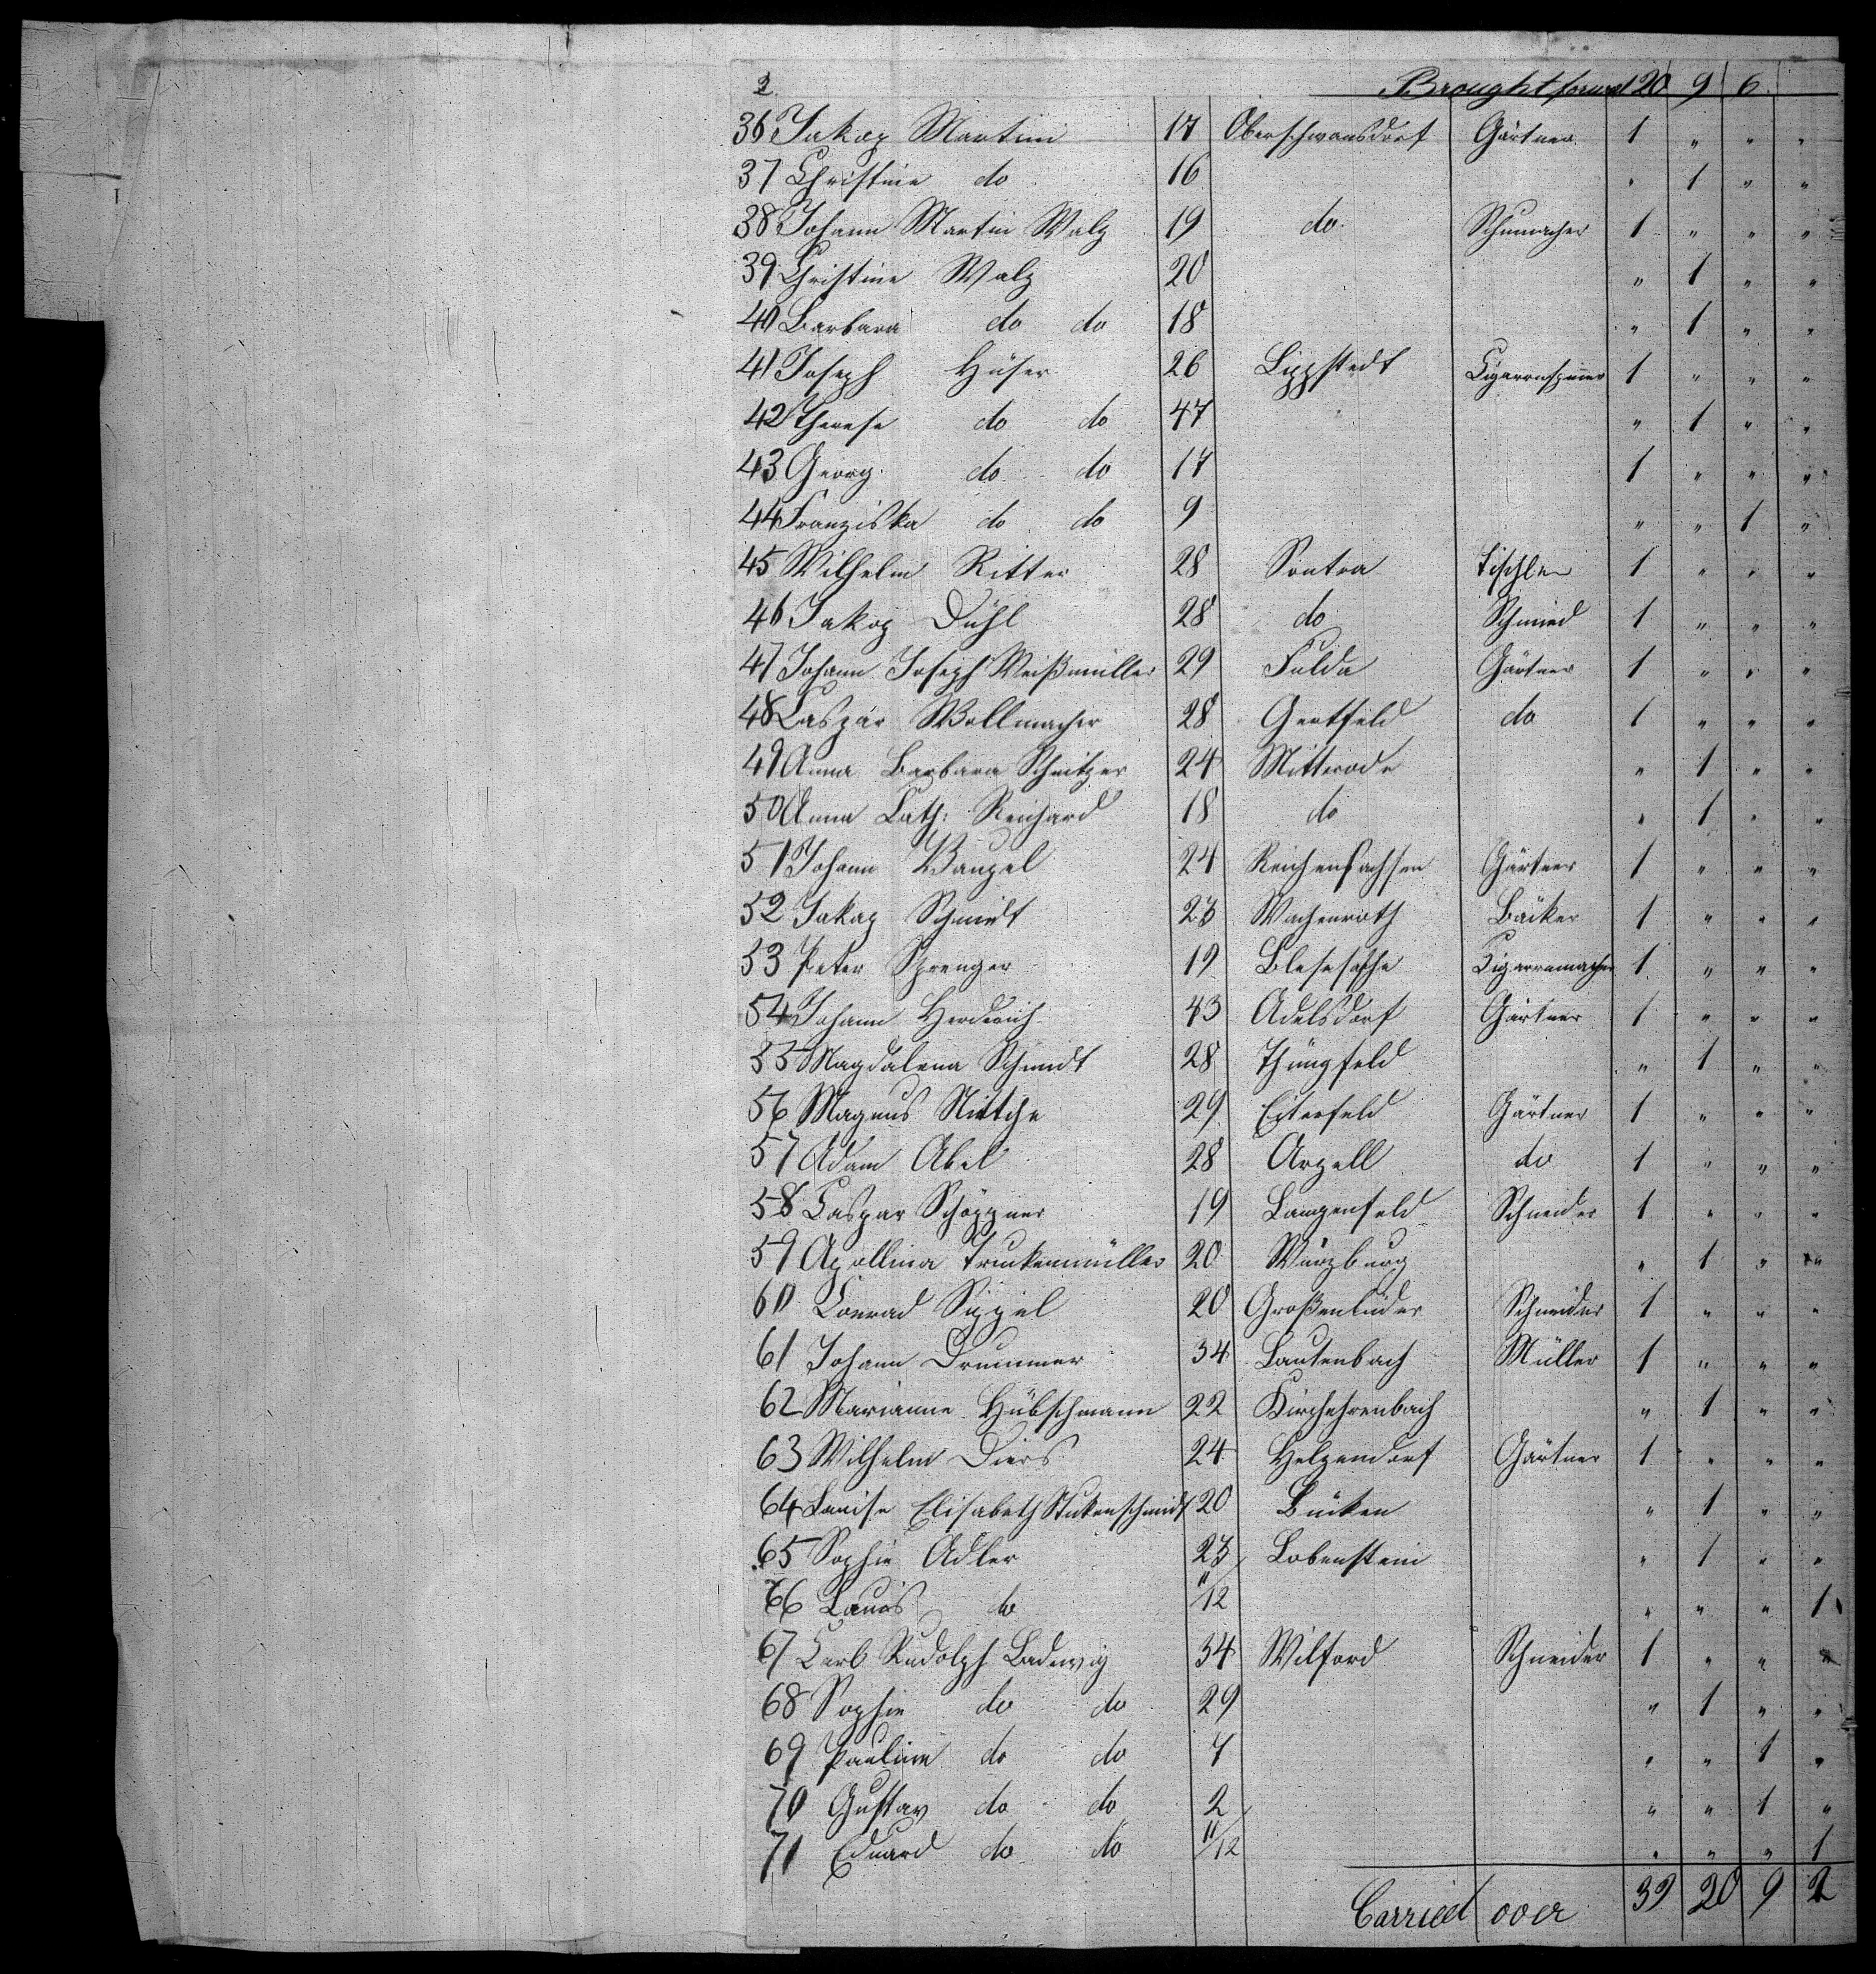 2.
Brought forwd 20 9 6
36 Jakop Martini 17 Oberschwansdorf Gärtner 1 " " "
37 Christine do 16 " 1 " "
38 Johann Martin Walz 19 do Schumacher 1 " " "
39 Christine Walz 20 " 1 " "
40 Barbara do do 18 " 1 " "
41 Joseph Hüser 26 Lippstedt Cigarrnspinner 1 " " "
42 Therese do do 47 " 1 " "
43 Georg do do 17 1 " " "
44 Franziska do do 9 " " 1 "
45 Wilhelm Ritter 28 Sontra Tischler 1 " " "
46 Jakop Dühl 28 do Schmied 1 " " "
47 Johann Joseph Weißmüller 29 Fulda Gärtner 1 " " "
48 Caspar Wollmacher 28 Geotfeld do 1 " " "
49 Anna Barbara Schnitzer 24 Mitterode " 1 " "
50 Anna Cath: Reichard 18 do " 1 " "
51 Johann Vaupel 24 Reichensachsen Gärtner 1 " " "
52 Jakop Schmidt 23 Wachenroth Bäcker 1 " " "
53 Peter Sprenger 19 Cigarremacher 1 " " "
54 Johann Herderich 43 Adelsdorf Gärtner 1 " " "
55 Magdalena Schmidt 28 Thüngfeld " 1 " "
56 Magnus Nittche 29 Eiterfeld Gärtner 1 " " "
57 Adam Abel 28 Arzell do 1 " " "
58 Caspar Schöppner 19 Langenfeld Schneider 1 " " "
59 Apollina Truckenmüller 20 Würzburg " 1 " "
60 Conrad Sippel 20 Großenlüder Schneider 1 " " "
61 Johann Drummer 34 Lautenbach Müller 1 " " "
62 Marianne Hübschmann 22 Kirchehrenbach " 1 " "
63 Wilhelm Diers 24 Helzendorf Gärtner 1 " " "
64 Louise Elisabeth Stukenschmidt 20 Bücken " 1 " "
65 Sophie Adler 23 Lobenstein " 1 " "
66 Louis do 11/12 " " " 1
67 Carl Rudolph Ladewig 34 Wilford Schneider 1 " " "
68 Sophie do do 29 " 1 " "
69 Pauline do do 7 " " 1 "
70 Gustav do do 2 " " 1 "
71 Eduard do do 11/12 " " " 1
Carried over 39 20 9 2